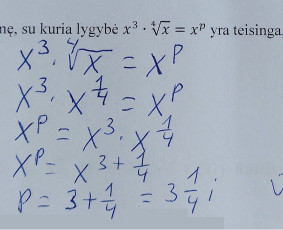 nę, su kuria lygybė x³ · ⁴√x = xᵖ yra teisinga.
x³ · ⁴√x = xᵖ
x³ · x^(1/4) = xᵖ
xᵖ = x³ · x^(1/4)
xᵖ = x^(3+1/4)
p = 3 + 1/4 = 3 1/4 ;